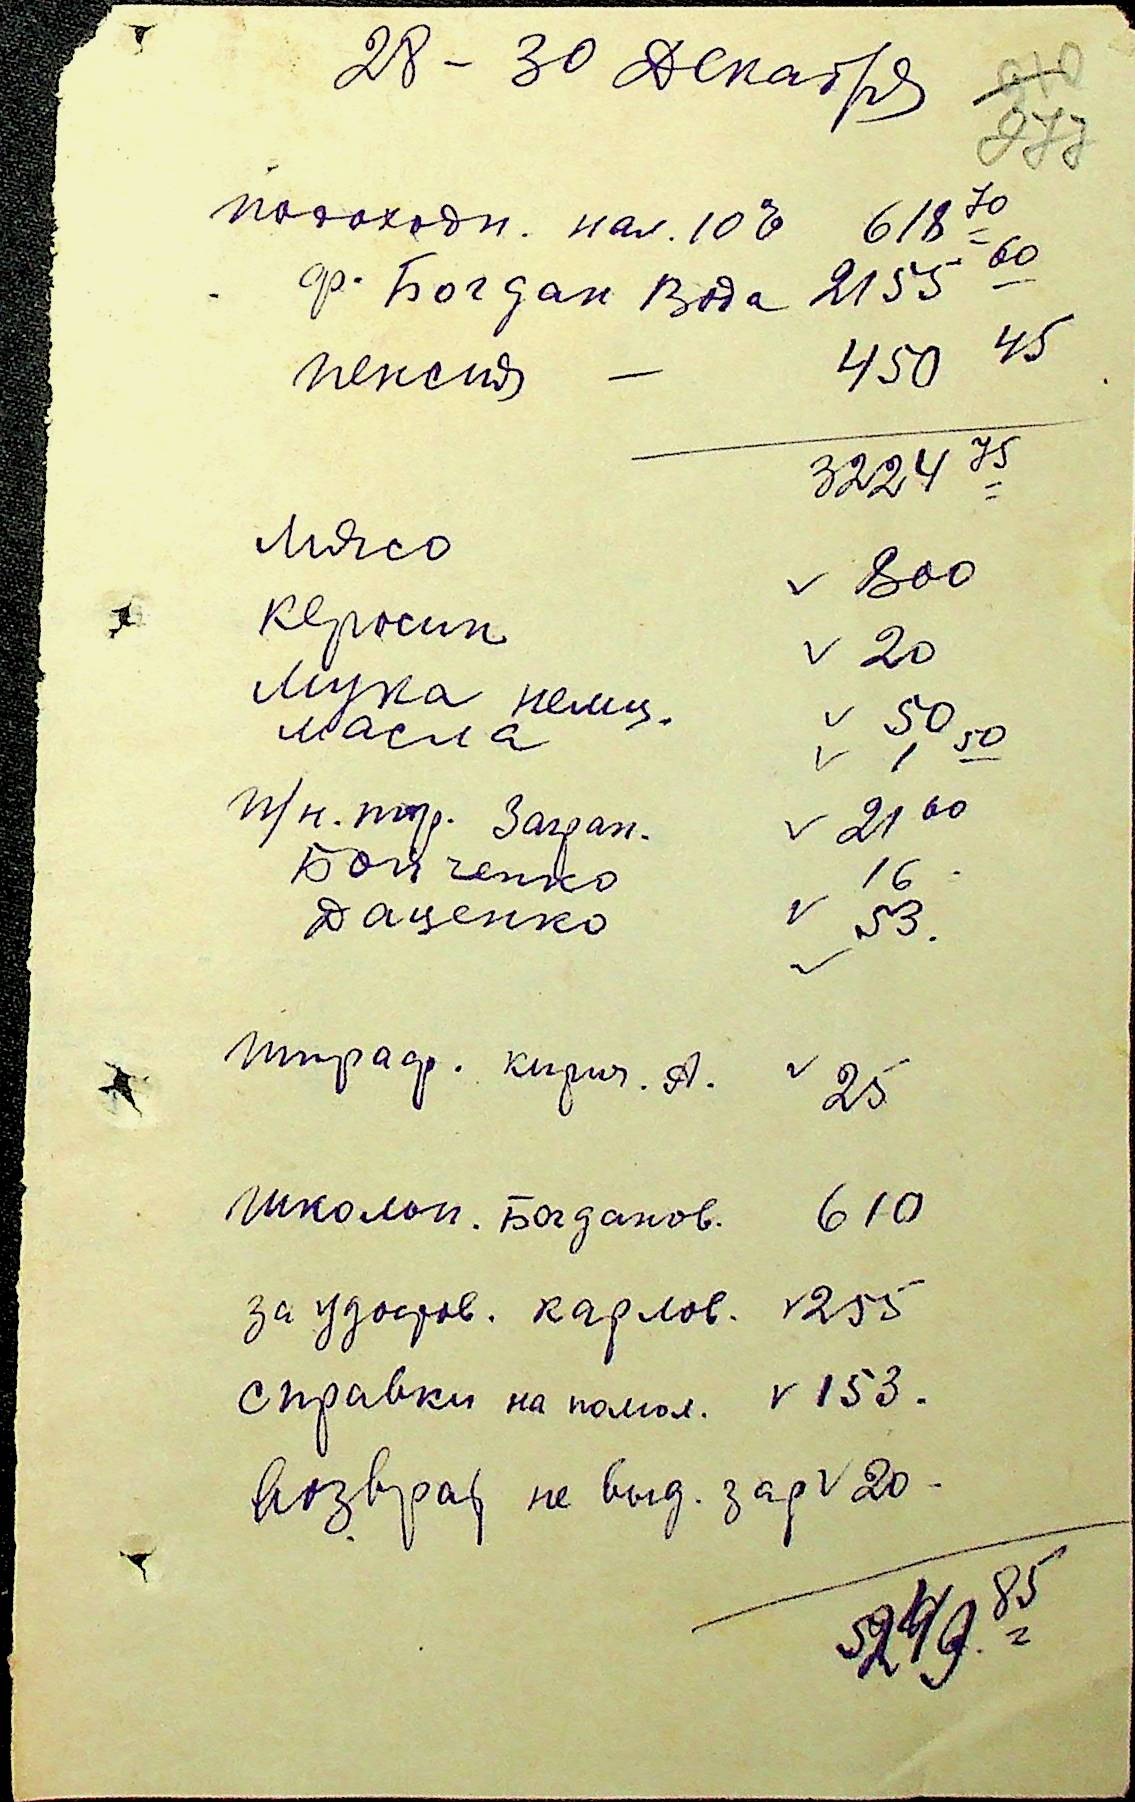 28 - 30 Декабря
277
подоходн. нал. 10% 618 70
ф. Богдан Вода 2155 60
пенсия — 450 45
3224 75
Мясо v 800
Керосин v 20
Мука немц. v 50
масла v 1 50
п/н. тр. Загран. v 21 60
Бойченко 16 -
Даценко v 53.
v
Штраф. Кирич. А. v 25
Школьн. Богданов. 610
за удостов. Карлов. v 255
Справки на помол. v 153.
Возврат не выд. зар v 20 -
5249. 85